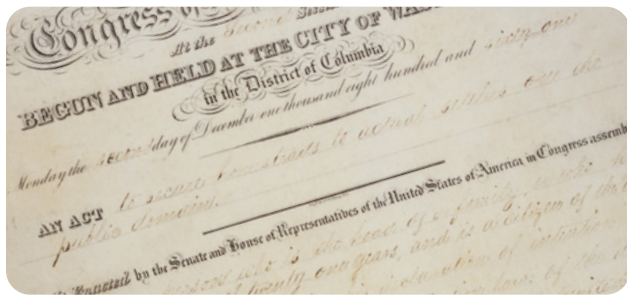 Congress of
At the Second Session
BEGUN AND HELD AT THE CITY OF WAS
in the District of Columbia
Monday the second day of December one thousand eight hundred and sixty-one
AN ACT to secure homesteads to actual settlers on the
public domain.
Enacted by the Senate and House of Representatives of the United States of America in Congress assemb
who is the head of a family,
twenty one years, and is a citizen of the
declaration of intention
laws of the